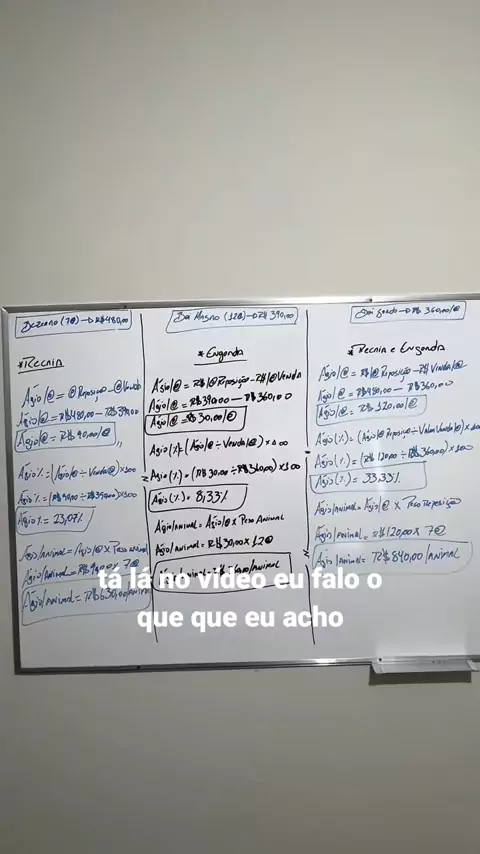 Bezerro (7@) → R$480,00
*Recria
Ágio/@ = @Reposição - @Venda
Ágio/@ = R$480,00 - R$390,00
Ágio/@ = R$90,00/@
Ágio% = (Ágio/@ ÷ Venda@) × 100
Ágio% = (R$90,00 ÷ R$390,00) × 100
Ágio% = 23,07%
Ágio/animal = Ágio/@ × Peso animal
Ágio/animal = R$90,00 × 7@
Ágio/animal = R$630,00/animal
Boi Magro (12@) → R$390,00
*Engorda
Ágio/@ = R$/@Reposição - R$/@Venda
Ágio/@ = R$390,00 - R$360,00
Ágio/@ = R$30,00/@
Ágio(%) = (Ágio/@ ÷ Venda/@) × 100
Ágio(%) = (R$30,00 ÷ R$360,00) × 100
Ágio(%) = 8,33%
Ágio/animal = Ágio/@ × Peso Animal
Ágio/animal = R$30,00 × 12@
/animal
Boi gordo → R$360,00/@
*Recria e Engorda
Ágio/@ = R$/@Reposição - R$/Venda/@
Ágio/@ = R$480,00 - R$360,00
Ágio/@ = R$120,00/@
Ágio(%) = (Ágio/@ Reposição ÷ Valor Venda/@) × 100
Ágio(%) = (R$120,00 ÷ R$360,00) × 100
Ágio(%) = 33,33%
Ágio/animal = Ágio/@ × Peso Reposição
Ágio/animal = R$120,00 × 7@
Ágio/animal = R$840,00/animal
tá lá no vídeo eu falo o
que que eu acho